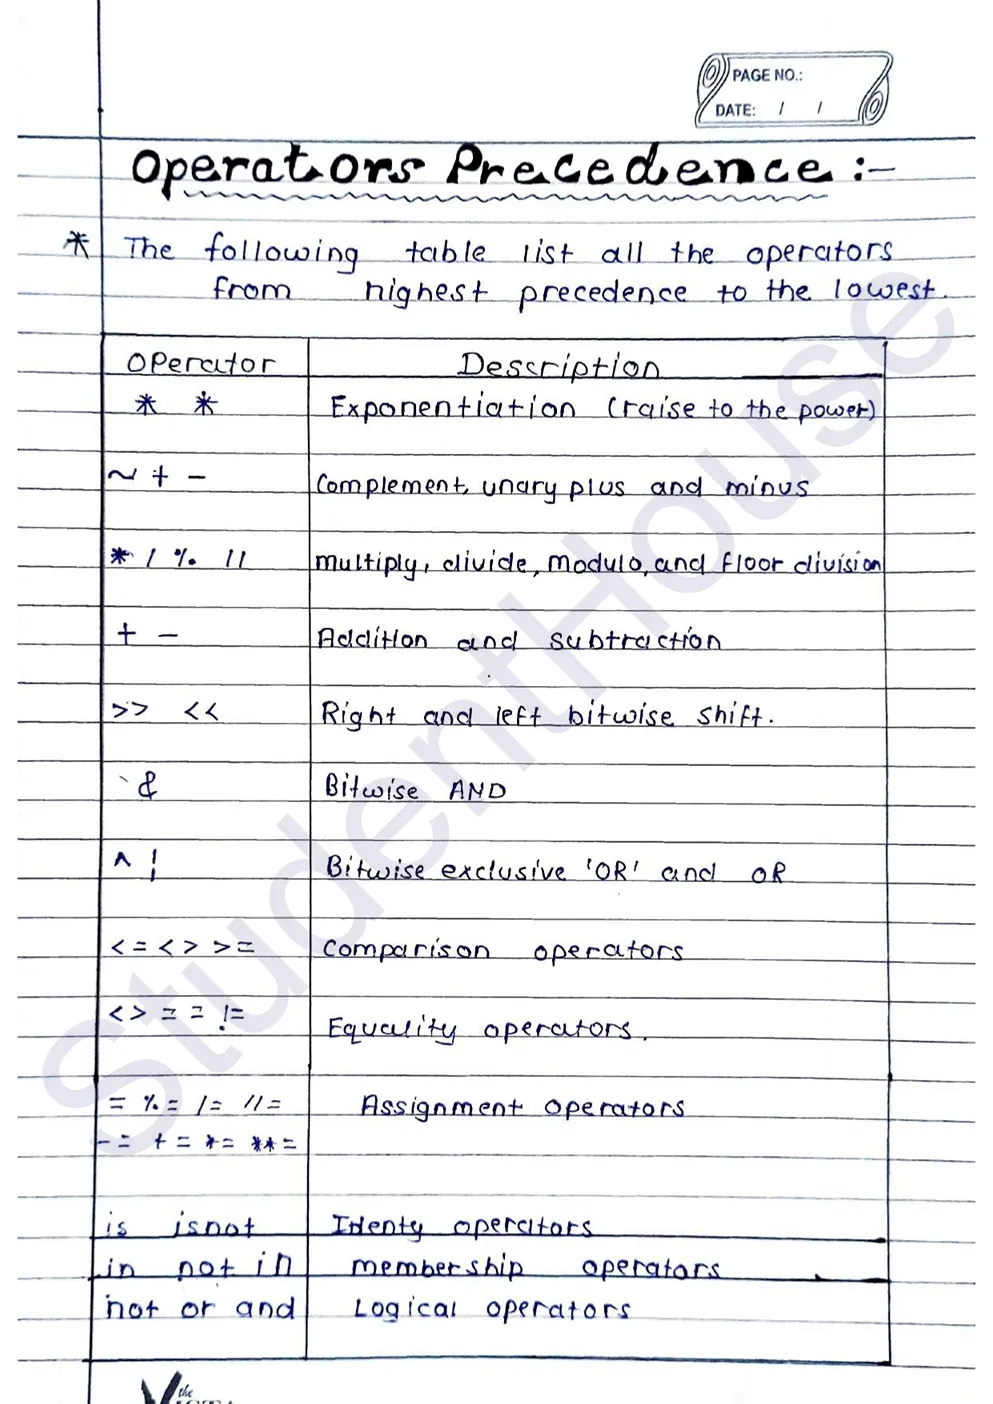 PAGE NO.:
DATE: / /
Operators Precedence :-
* The following table list all the operators
from highest precedence to the lowest.
Operator Description
* * Exponentiation (raise to the power)
~ + - Complement, unary plus and minus
* / % // multiply, divide, modulo, and floor division
+ - Addition and subtraction
>> << Right and left bitwise shift.
& Bitwise AND
^ | Bitwise exclusive 'OR' and OR
< = < > > = Comparison operators
< > = = != Equality operators.
= %= /= //= Assignment operators
-= += *= **=
is isnot Identy operators
in not in membership operators
not or and Logical operators
StudentHouse
the